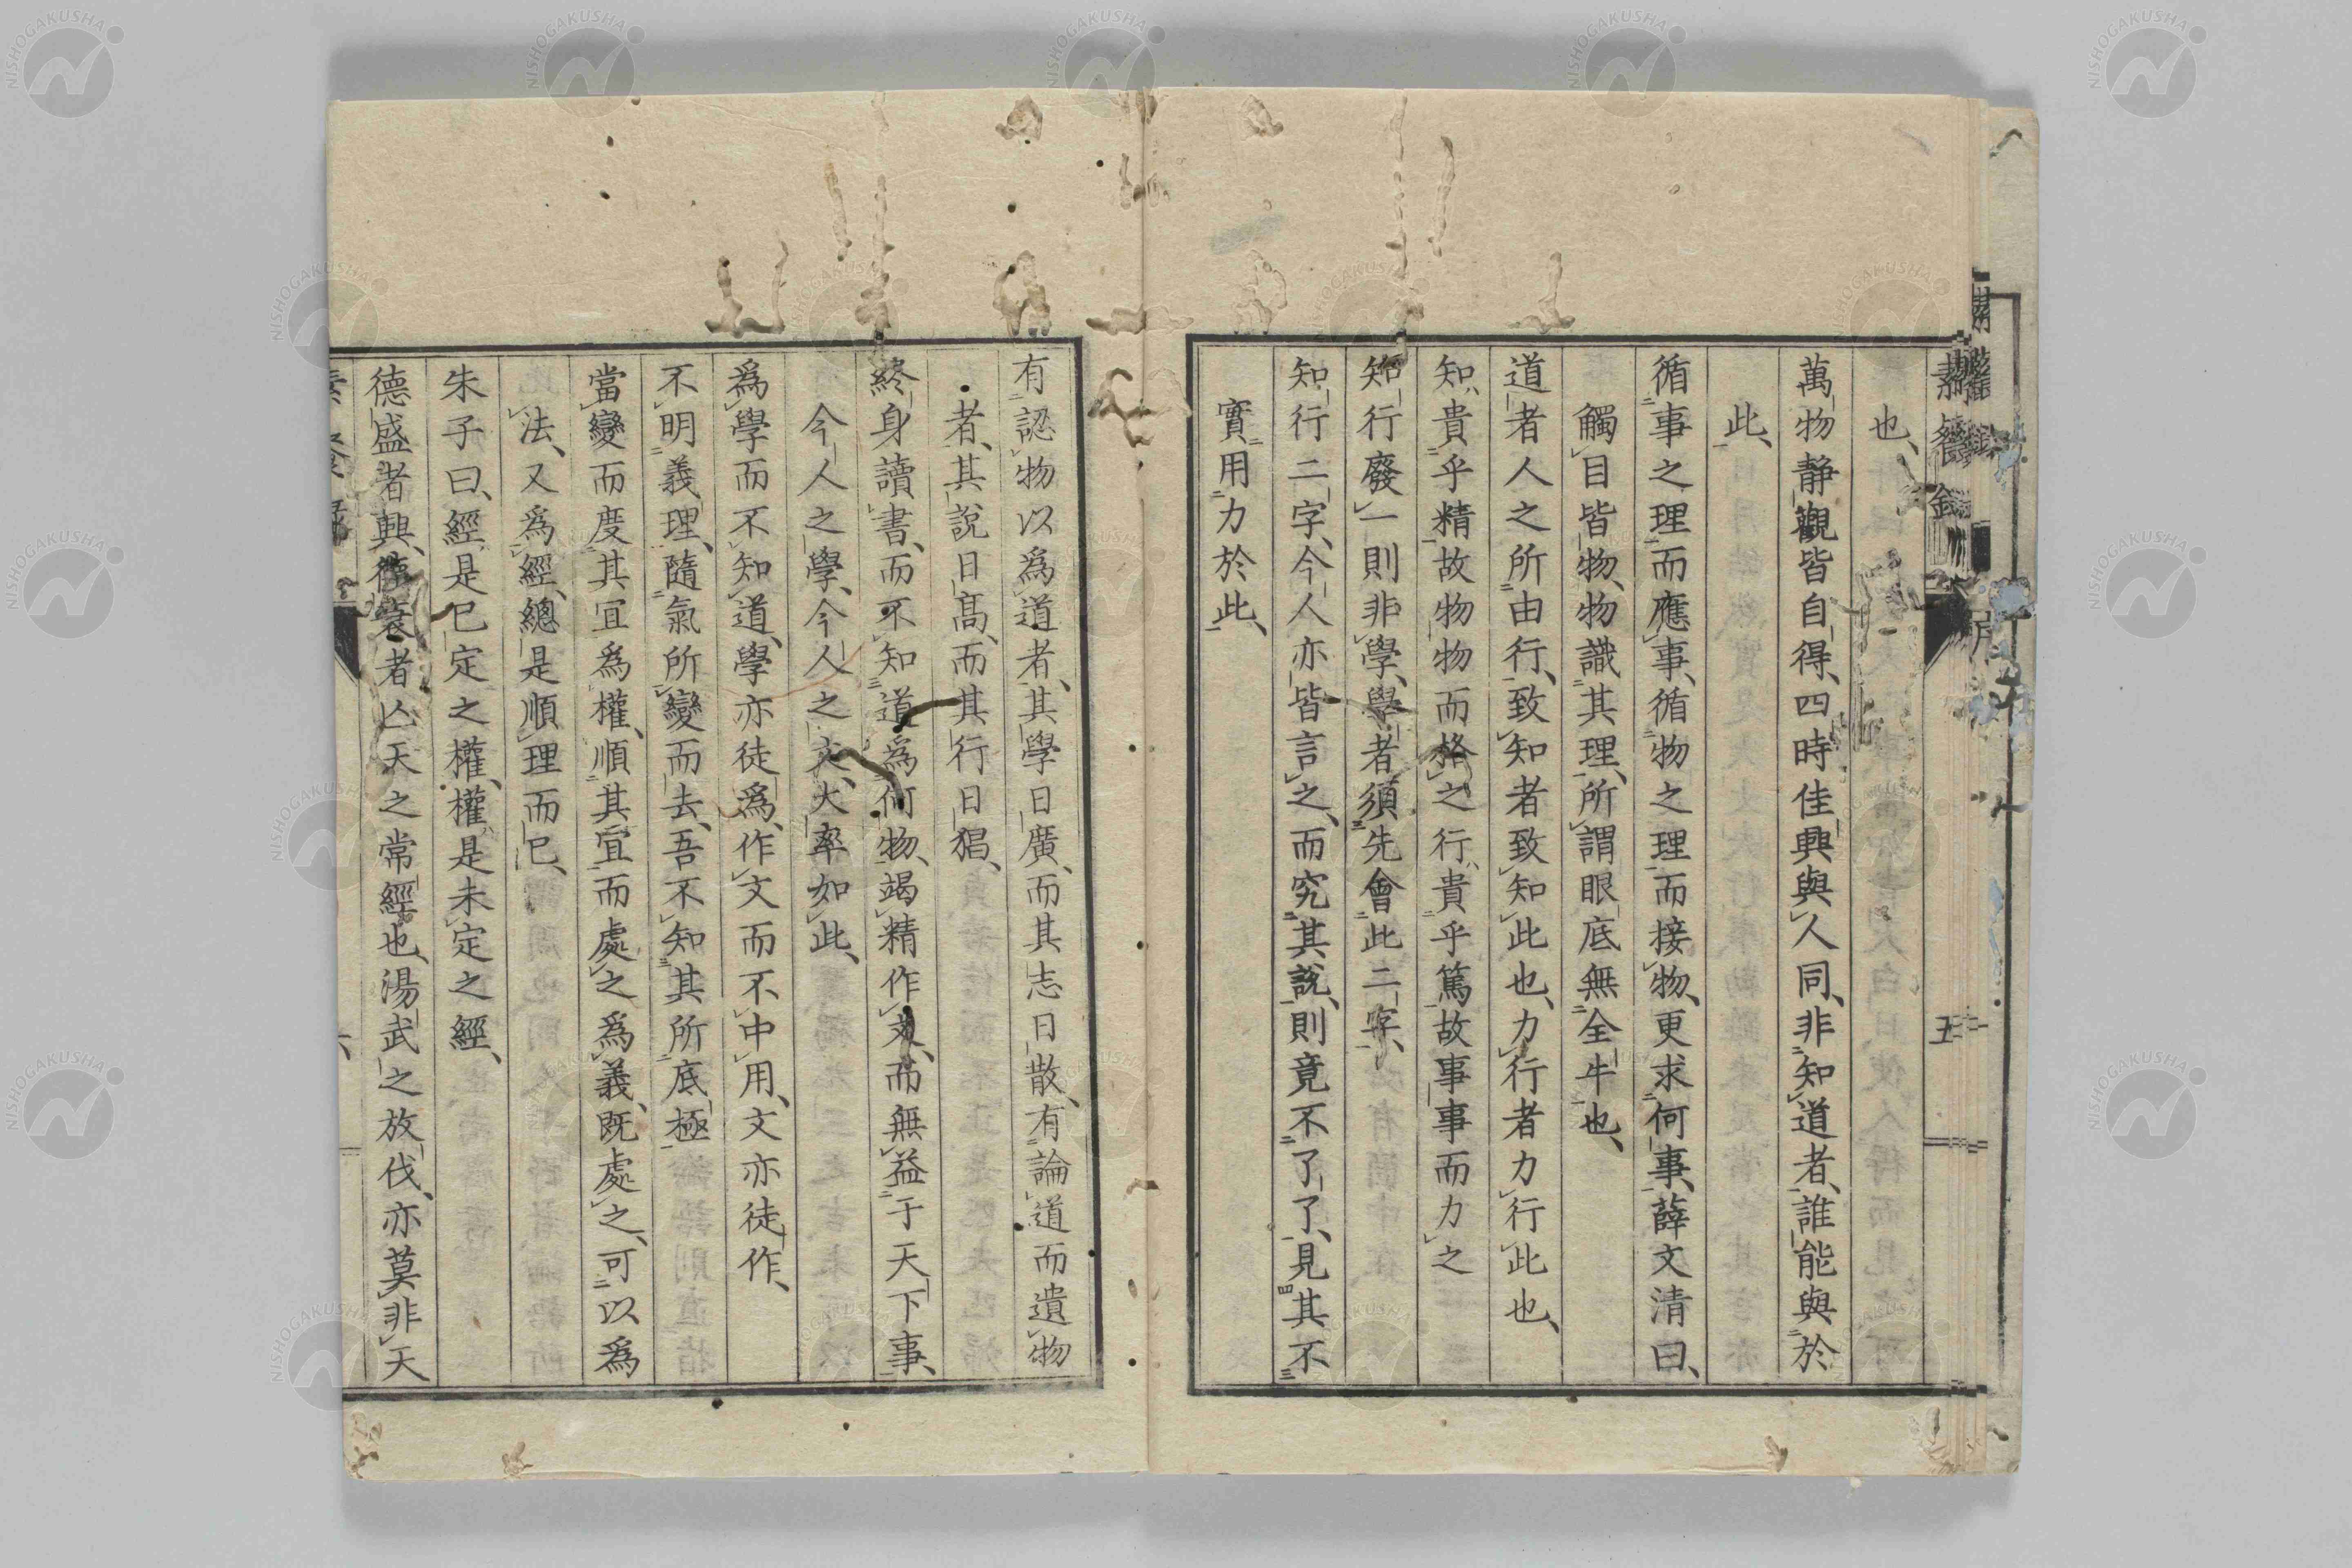 也、
萬物靜觀皆自得、四時佳興與人同、非知道者、誰能與於
此、
循事之理而應事、循物之理而接物、更求何事、薛文清曰、
觸目皆物、物識其理、所謂眼底無全牛也、
道者人之所由行、致知者致知此也、力行者力行此也、
知貴乎精故物物而格之行貴乎篤故事事而力之
知行廢一則非學、學者須先會此二字、
知行二字、今人亦皆言之、而究其說、則竟不了了、見其不
實用力於此、
五
有認物以爲道者、其學日廣、而其志日散、有論道而遺物
者、其說日高、而其行日猖、
終身讀書、而不知道爲何物、竭精作文、而無益于天下事、
今人之學、今人之文、大率如此、
爲學而不知道、學亦徒爲、作文而不中用、文亦徒作、
不明義理、隨氣所變而去、吾不知其所底極
當變而度其宜爲權、順其宜而處之爲義、既處之、可以爲
法、又爲經、總是順理而已、
朱子曰、經是已定之權、權是未定之經、
德盛者興、德衰者亾天之常經也、湯武之放伐、亦莫非天